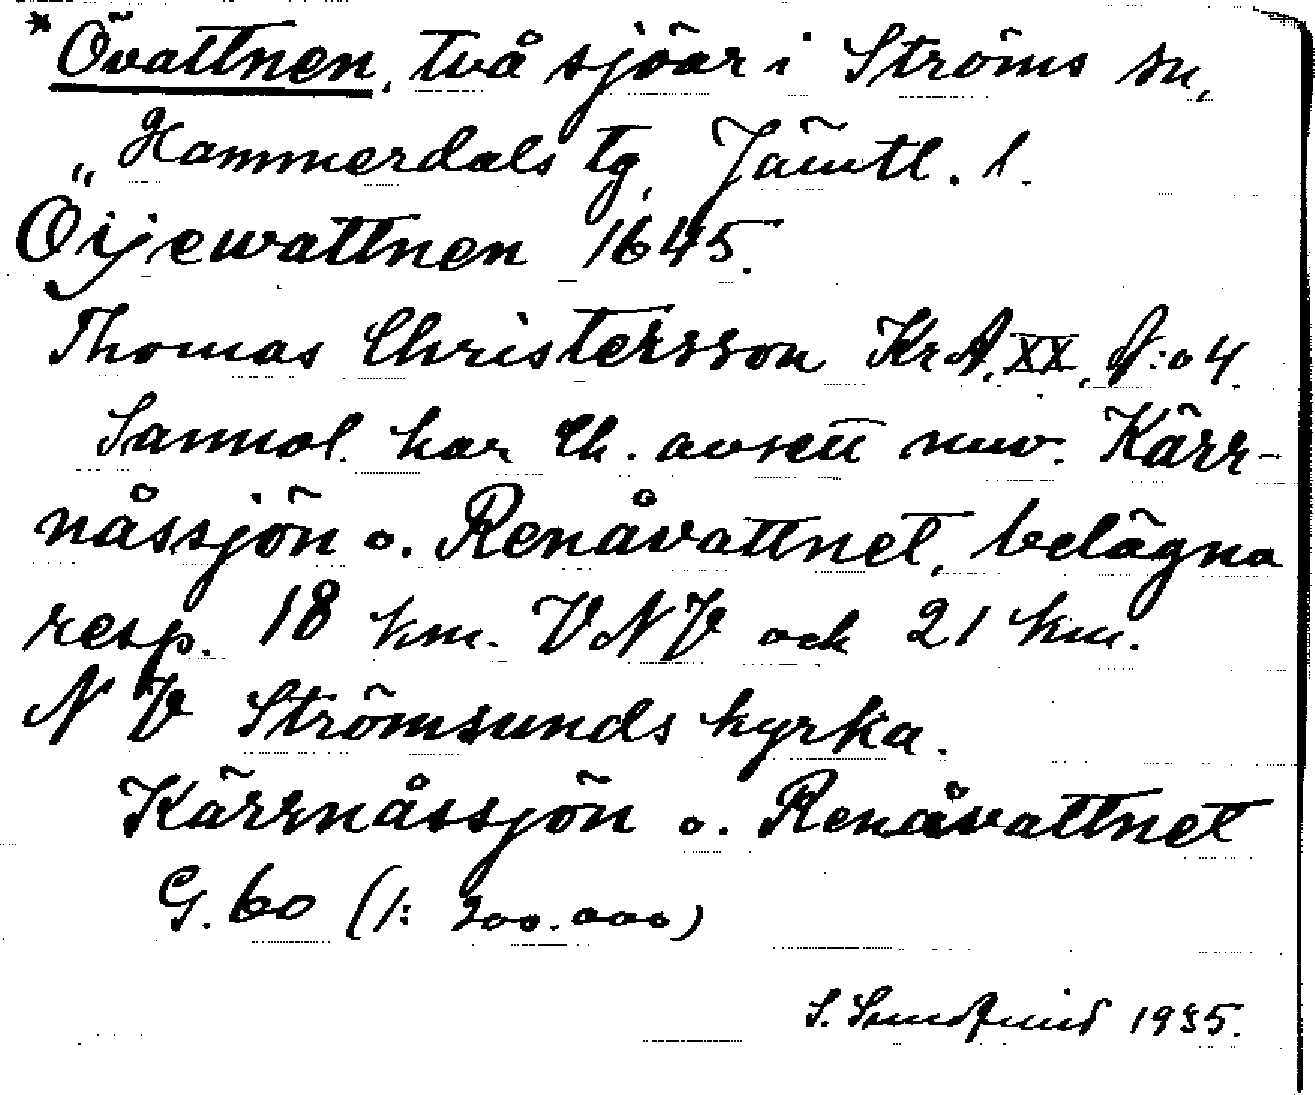 *Övattnen, två sjöar i Ströms sn,
Hammerdals tg, Jämtl. l.
Öijewattnen 1645.
Thomas Christersson KrA, XX, N:o 4.
Sannol. har Ch. avsett nuv. Kärr-
nåssjön o. Renåvattnet, belägna
resp. 18 km. VNV och 21 km.
NV Strömsunds kyrka.
Kärrnåssjön o. Renåvattnet
G. 60 (1: 200.000)
S. 1935.